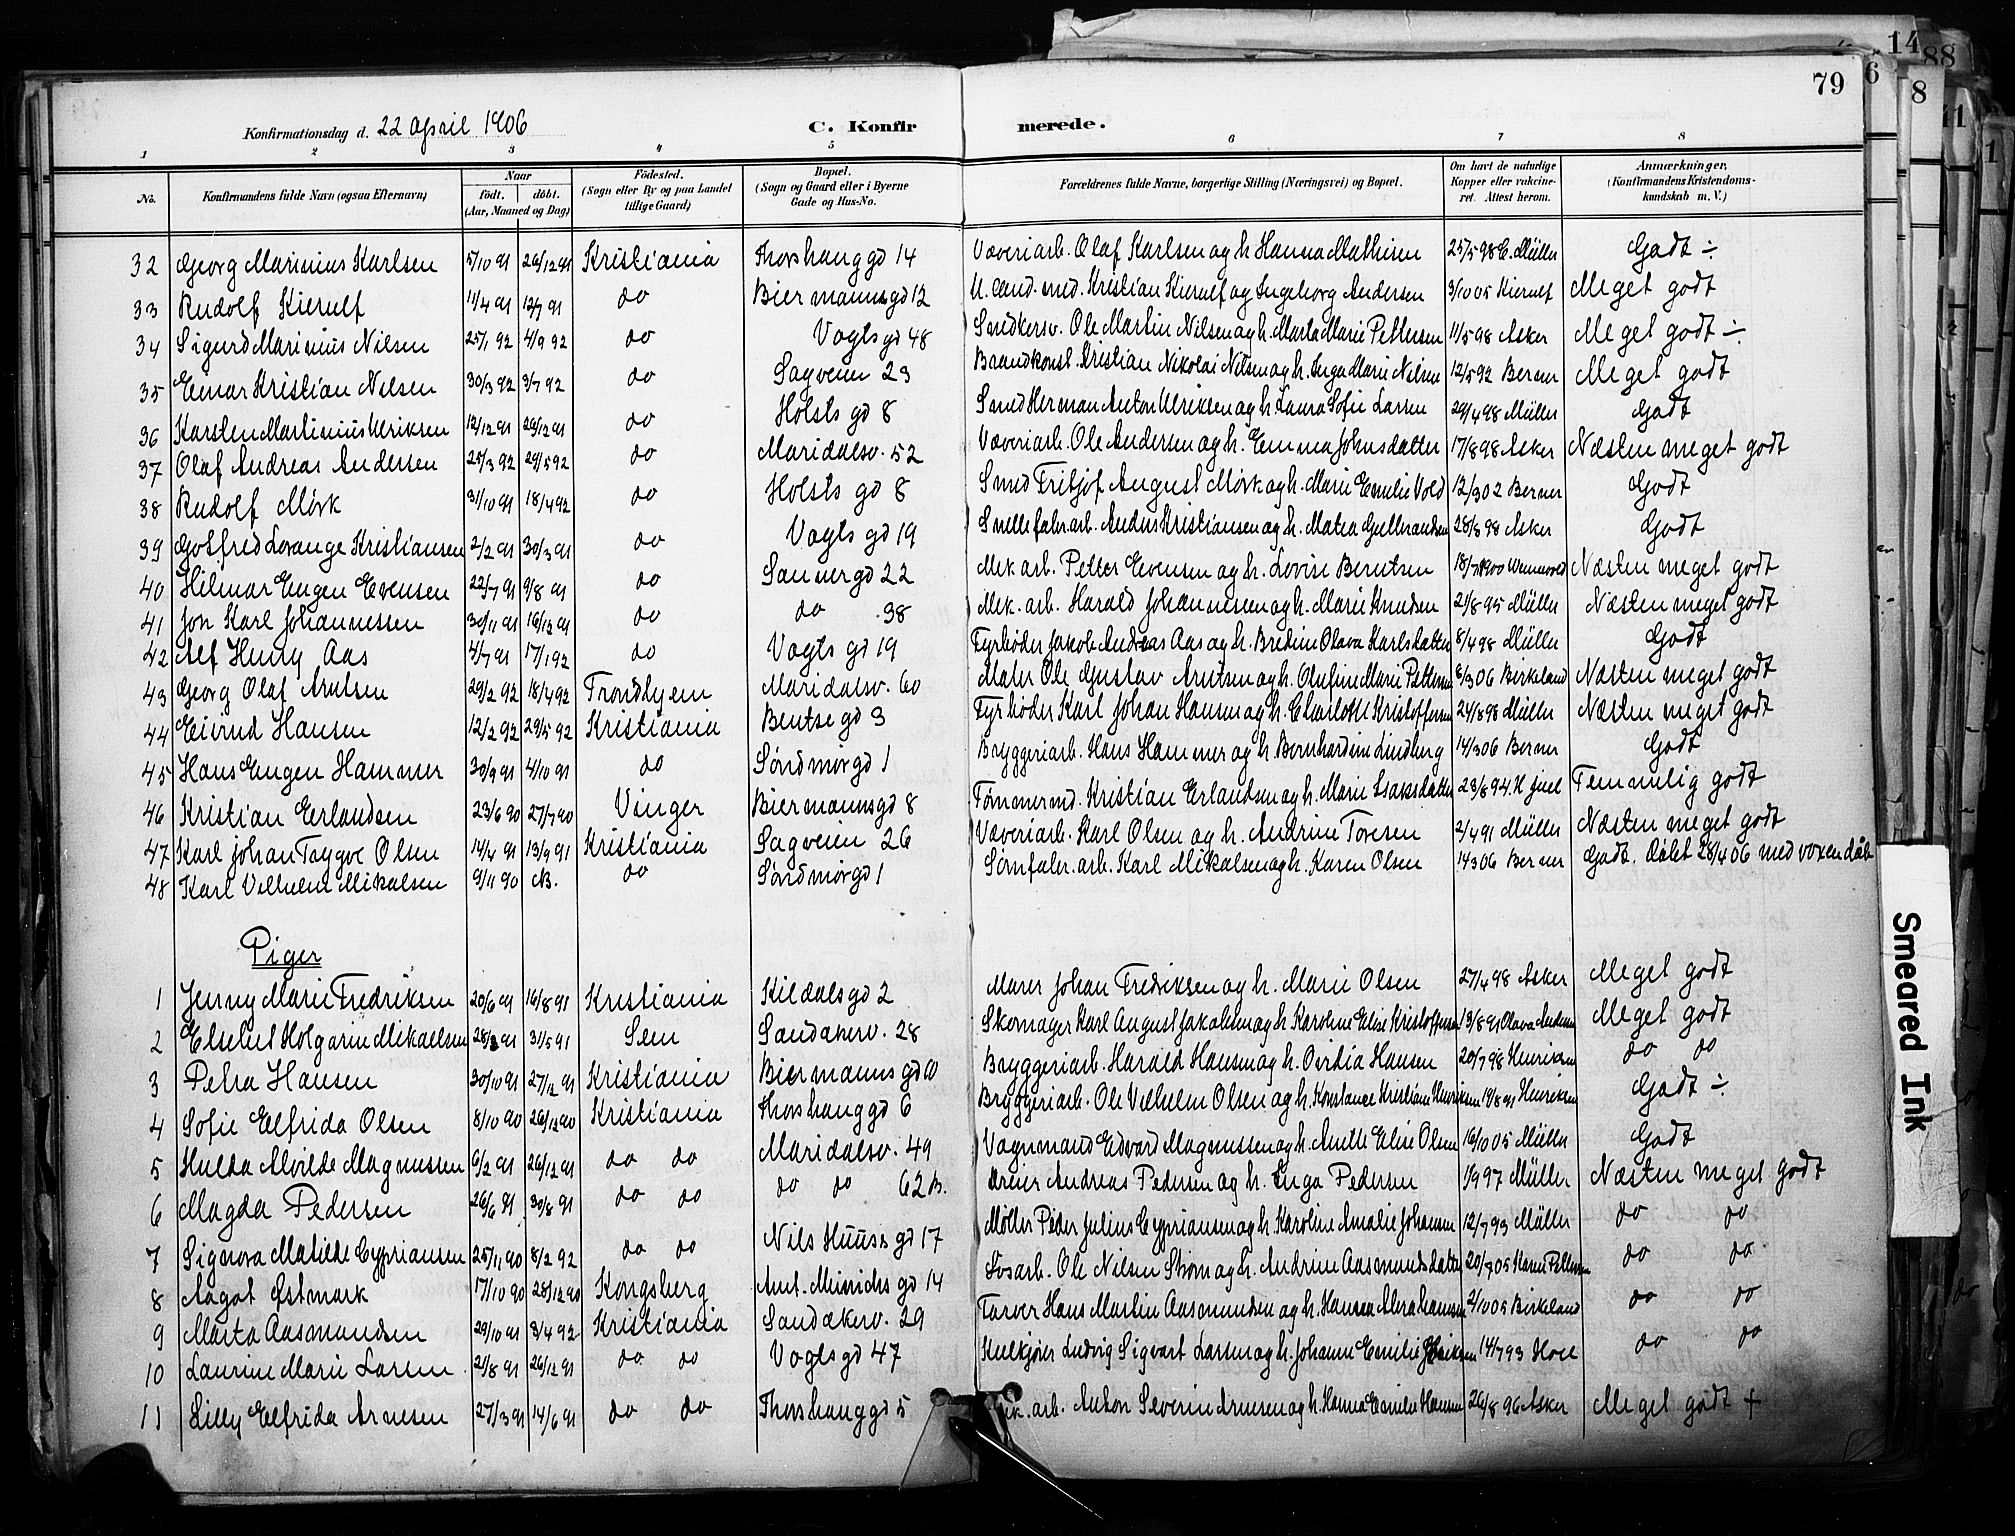 79
Konfirmationsdag d. 22 April 1906 C. Konfir merede.
1 2 3 4 5 6 7 8
No. Konfirmandens fulde Navn (ogsaa Efternavn) Naar födt. döbt. (Aar, Maaned og Dag) Födested. (Sogn eller By og paa Landet tillige Gaard) Bopæl. (Sogn og Gaard eller i Byerne Gade og Hus-No. Forældrenes fulde Navne, borgerlige Stilling (Næringsvei) og Bopæl. Om havt de naturlige Kopper eller vakcineret. Attest herom. Anmærkninger. (Konfirmandens Kristendomskundskab m. V.)
32 Georg Marinius Karlsen 5/10 91 26/12 91 Kristiania Thorshauggd 14 Væveriarb. Olaf Karlsen og h. Hanna Mathisen 25/5 98 C. Müller Godt ÷
33 Rudolf Kierulf 11/4 91 12/7 91 do Biermannsgd 12 U. Cand. med. Kristian Kierulf og Ingeborg Andersen 3/10 05 Kierulf Meget godt
34 Sigurd Marinius Nilsen 25/1 92 4/9 92 do Vogts gd 48 Snedkersv. Ole Martin Nilsen og h. Marta Marie Pettersen 11/5 98 Asker Meget godt ÷
35 Einar Kristian Nilsen 30/3 92 3/7 92 do Sagveien 23 Brandkonst. Kristian Nikolai Nilsen og h. Inga Marie Nilsen 12/5 92 Berner Meget godt
36 Karsten Martinius Ulriksen 12/12 91 29/12 91 do Holsts gd 8 Smed Herman Anton Ulriksen og h. Laura Sofie Larsen 29/4 98 Müller Godt
37 Olaf Andreas Andersen 25/3 92 29/5 92 do Maridalsv. 52 Væveriarb. Ole Andersen og h. Emma Johnsdatter 17/8 98 Asker Næsten meget godt
38 Rudolf Mörk 31/10 91 18/4 92 do Holsts gd 8 Smed Fritjof August Mörk og h. Marie Emilie Vold 12/3 02 Berner Godt
39 Gotfred Lorange Kristiansen 2/2 91 30/3 91 do Vogts gd 19 Snellefabr.arb. Anders Kristiansen og h. Matea Gulbrandsen 28/8 98 Asker Godt
40 Hilmar Eugen Evensen 22/7 91 9/8 91 do Sannergd 22 Mek arb. Petter Evensen og h. Lovise Berntsen 18/7 1900 Næsten meget godt
41 Jon Karl Johannessen 30/11 91 16/12 91 do do 38 Mek. arb. Harald Johannesen og h. Marie Knudsen 21/8 95 Müller Næsten meget godt
42 Alf Henry Aas 4/7 91 17/1 92 do Vogts gd 19 Fyrböder Jakob Andreas Aas og h. Bredine Olava Karlsdatter 8/4 98 Müller Godt
43 Georg Olaf Arntsen 29/2 92 18/4 92 Trondhjem Maridalsv. 60 Maler Ole Gustav Arntsen og h. Olufine Marie Pettersen 6/3 06 Birkeland Næsten meget godt
44 Eivind Hansen 12/2 92 29/5 92 Kristiania Bentse gd 3 Fyrböder Karl Johan Hansen og h. Charlotte Kristoffersen 24/8 98 Müller Næsten meget godt
45 Hans Eugen Hammer 30/9 91 4/10 91 do Söndmörgd 1 Bryggeriarb. Hans Hammer og h. Bernhardine Lindberg 14/3 06 Berner Godt
46 Kristian Erlandsen 23/6 90 27/7 90 Vinger Biermannsgd 8 Tömmermd. Kristian Erlandsen og h. Marie Isaksdatter 23/8 94. H Juel Temmelig godt
47 Karl Johan Trygve Olsen 14/4 91 13/9 91 Kristiania Sagveien 26 Væveriarb. Karl Olsen og h. Andrine Toresen 2/4 91 Müller Næsten meget godt
48 Karl Vilhelm Mikalsen 9/11 90 NB. do Söndmörgd 1 Sömfabr. arb. Karl Mikalsen og h. Karen Olsen 14 3 06 Berner Godt. Döbt 28/4 06 med voxendåb
Piger
1 Jenny Marie Fredriksen 20/6 91 16/8 91 Kristiania Kildalsgd 2 Murer Johan Fredriksen og h. Marie Olsen 27/4 98 Asker Meget godt
2 Elsebet Holgarine Mikaelsen 28/3 91 31/5 91 Sem Sandakerv. 28 Skomager Karl August Jakobsen og h. Karoline Elise Kristoffersen 13/8 91 Olava Andersen Meget godt
3 Petra Hansen 30/10 91 27/12 91 Kristiania Biermanns gd 10 Bryggeriarb. Harald Hansen og h. Ovidia Hansen 20/7 98 Henriksen do do
4 Sofie Elfrida Olsen 8/10 90 26/12 90 Kristiania Thorshauggd 6 Bryggeriarb. Ole Vilhelm Olsen og h. Konstance Kristiane Henriksen 19/8 91 Henriksen Godt ÷
5 Hulda Alvilde Magnussen 9/2 91 26/12 91 do do Maridalsv. 49 Vognmand Edvard Magnussen og h. Anette Eline Olsen 16/10 05 Müller Godt
6 Magda Pedersen 26/6 91 30/8 91 do do do do 62 B. Dreier Andreas Pedersen og h. Inga Pedersen 1/9 97 Müller Næsten meget godt
7 Signora Matilde Cypriansen 25/11 90 8/2 92 do do Nils Huus's gd 17 Möller Peder Julius Cypriansen og h. Karoline Amalie Johansen 12/7 93 Müller do do
8 Aagot Östmark 17/10 90 28/12 90 Kongsberg Ant. Meinichs gd 14 Løsarb. Ole Nilsen Ström og h. Andrine Aasmundsdatter 20/7 05 Karen Pettersen do do
9 Marta Aasmundsen 29/10 91 3/4 92 Kristiania Sandakerv. 29 Farver Hans Martin Aasmundsen og h. Hansea Abrahamsen 2/10 05 Birkeland do do
10 Laurine Marie Larsen 21/8 91 26/12 91 do do Vogts gd 47 Kulkjörer Ludvig Sigvart Larsen og h. Johanne Emilie Eriksen 14/7 93 Holl do do
11 Lilly Elfrida Arnesen 27/3 91 14/6 91 do do Thorshauggd 5 Mek. arb. Anton Severin Arnesen og h. Hanna Emilie Hansen 26/8 96 Asker Meget godt +
Smeared Ink
14 88
6
8
11
1